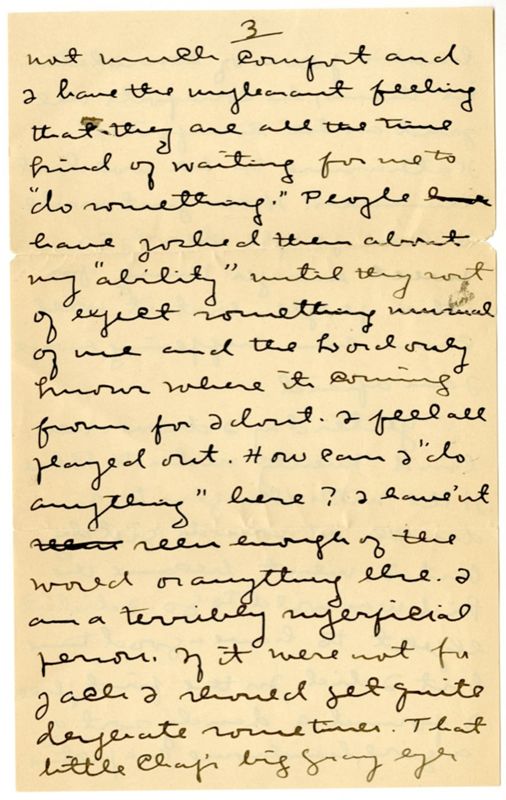 3
not much comfort and
I have the unpleasant feeling
that they are all the time
kind of waiting for me to
"do something." People
have joshed them about
my "ability" until they sort
of expect something unusual
of me and the Lord only
knows where its coming
from for I dont. I feel all
played out. How can I "do
anything" here? I have'nt
seen enough of the
world or anything else. I
am a terribly superficial
person. If it were not for
Jack I should get quite
desperate sometimes. That
little Chap's big gray eyes